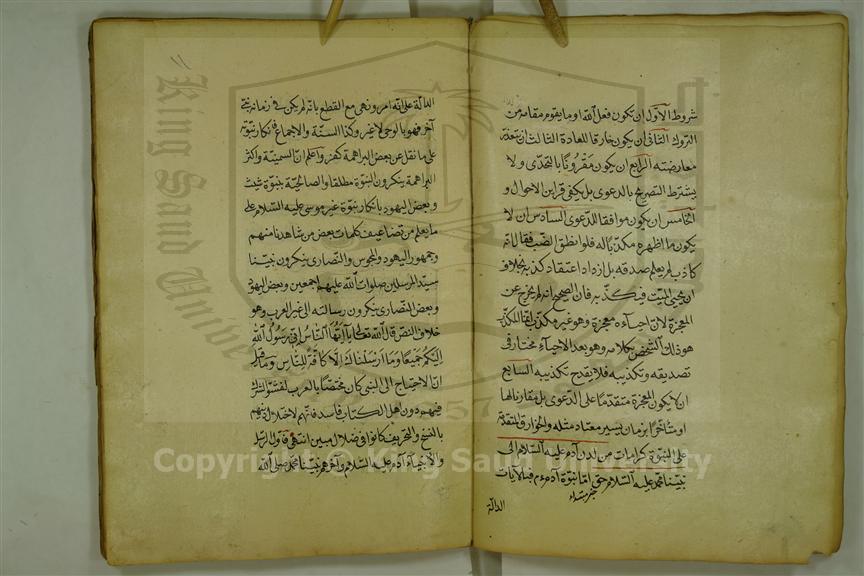 شروط الأول ان تكون فعل الله او ما يقوم مقامه من
التروك الثاني ان يكون خارقا للعادة الثالث ان يتعذر
معارضته الرابع ان يكون مقرونا بالتحدى ولا
يشترط التصريح بالدعوى بل يكفى قراين الاحوال و
الخامس ان يكون موافقا للدعوى السادس ان لا
يكون ما اظهره مكذبا له فلو انطق الضب فقال انه
كاذب لم يعلم صدقه بل ازداد اعتقاد كذبه بخلاف
ان يحيى الميت فيكذبه فان الصحيح انه لم يخرج عن
المعجزة لان احياءه معجزة وهو غير مكذب انما المكذب
هو ذلك الشخص بكلامه وهو بعد الاحياء مختار فى
تصديقه وتكذيبه فلا يقدح تكذيبه السابع
ان لا يكون المعجزة متقدما على الدعوى بل مقارنا لها
او متأخرا بزمان يسير معتاد مثله والخوارق المتقدمة
على النبوة كرامات من لدن آدم عليه السلام الى
نبينا محمد عليه السلام حق اما نبوة آدم عم فبالآيات
الدالة
١١
الدالة على انه امر ونهى مع القطع بانه لم يكن فى زمانه نبى
آخر فهو بالوحى لا غير وكذا السنة والاجماع فانكار نبوته
على ما نقل عن بعض البراهمة كفر واعلم ان السمنية واكثر
البراهمة ينكرون النبوة مطلقا والصالحية بنبوة شيث
وبعض اليهود بانكار نبوة غير موسى عليه السلام على
ما يعلم من تضاعيف كلمات بعض من شاهدنا منهم
وجمهور اليهود والمجوس والنصارى ينكرون نبينا
سيد المرسلين صلوات الله عليهم اجمعين وبعض اليهود
وبعض النصارى ينكرون رسالته الى غير العرب وهو
خلاف النص قال الله تعالى يا أيها الناس إني رسول الله
إليكم جميعا وما أرسلناك إلا كافة للناس وما قيل
ان الاحتياج الى النبى كان مختصا بالعرب لفشو الشرك
فيهم دون اهل الكتاب فاسد فانهم لاختلال دينهم
بالنسخ والتحريف كانوا فى ضلال مبين انتهى فاول الرسل
والانبياء آدم عليه السلام وآخرهم نبينا محمد صلى الله
Copyright © King Saud University
King Saud University
1957